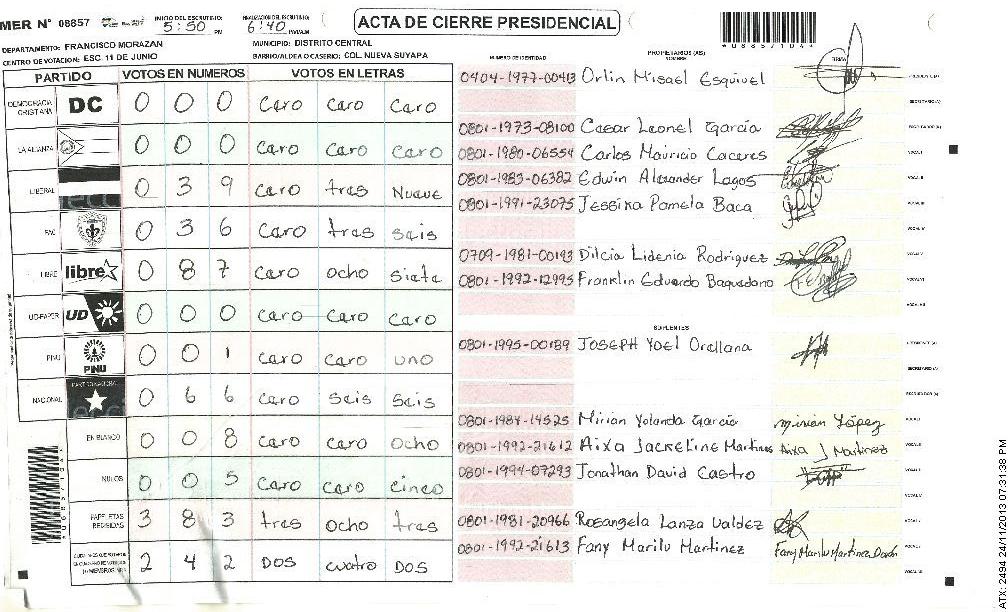 MER N° 08857 INICIO DEL ESCRUTINIO: 5:50 PM FINALIZACION DEL ESCRUTINIO: 6:40 PM/AM ACTA DE CIERRE PRESIDENCIAL
DEPARTAMENTO: FRANCISCO MORAZAN MUNICIPIO: DISTRITO CENTRAL
CENTRO DE VOTACION: ESC. 11 DE JUNIO BARRIO/ALDEA O CASERIO: COL. NUEVA SUYAPA
PARTIDO VOTOS EN NUMEROS VOTOS EN LETRAS
DEMOCRACIA CRISTIANA DC 0 0 0 Caro Caro Caro
LA ALIANZA 0 0 0 Caro Caro Caro
LIBERAL 0 3 9 Caro tres Nueve
PAC 0 3 6 Caro tres Seis
LIBRE libre 0 8 7 Caro ocho Siete
UD-FAPER UD 0 0 0 Caro Caro Caro
PINU PINU 0 0 1 Caro Caro uno
NACIONAL 0 6 6 Caro Seis Seis
EN BLANCO 0 0 8 Caro Caro Ocho
NULOS 0 0 5 Caro Caro cinco
PAPELETAS RECIBIDAS 3 8 3 tres Ocho tres
2 4 2 DOS Cuatro DOS
NUMERO DE IDENTIDAD PROPIETARIOS (AS) NOMBRE FIRMA
0404-1977-00413 Orlin Misael Esquivel PRESIDENTE (A)
SECRETARIO (A)
0801-1973-08100 Cesar Leonel Garcia ESCRUTADOR (A)
0801-1980-06554 Carlos Mauricio Caceres VOCAL I
0801-1983-06382 Edwin Alexander Lagos VOCAL II
0801-1991-23075 Jessika Pamela Baca VOCAL III
VOCAL IV
0709-1981-00193 Dilcia Lidenia Rodriguez VOCAL V
0801-1992-12995 Franklin Eduardo Baquedano VOCAL VI
VOCAL VII
SUPLENTES
0801-1995-00189 JOSEPH Yoel Orellana PRESIDENTE (A)
SECRETARIO (A)
ESCRUTADOR (A)
0801-1984-14525 Mirian Yolanda Garcia mirian López VOCAL I
0801-1992-21612 Aixa Jackeline Martines Aixa J Martinez VOCAL II
0801-1994-07293 Jonathan David Castro VOCAL III
VOCAL IV
0801-1981-20966 Rosangela Lanza Valdez VOCAL V
0801-1992-21613 Fany Marilu Martinez VOCAL VI
VOCAL VII
ATX: 2494 24/11/2013 07:31:38 PM